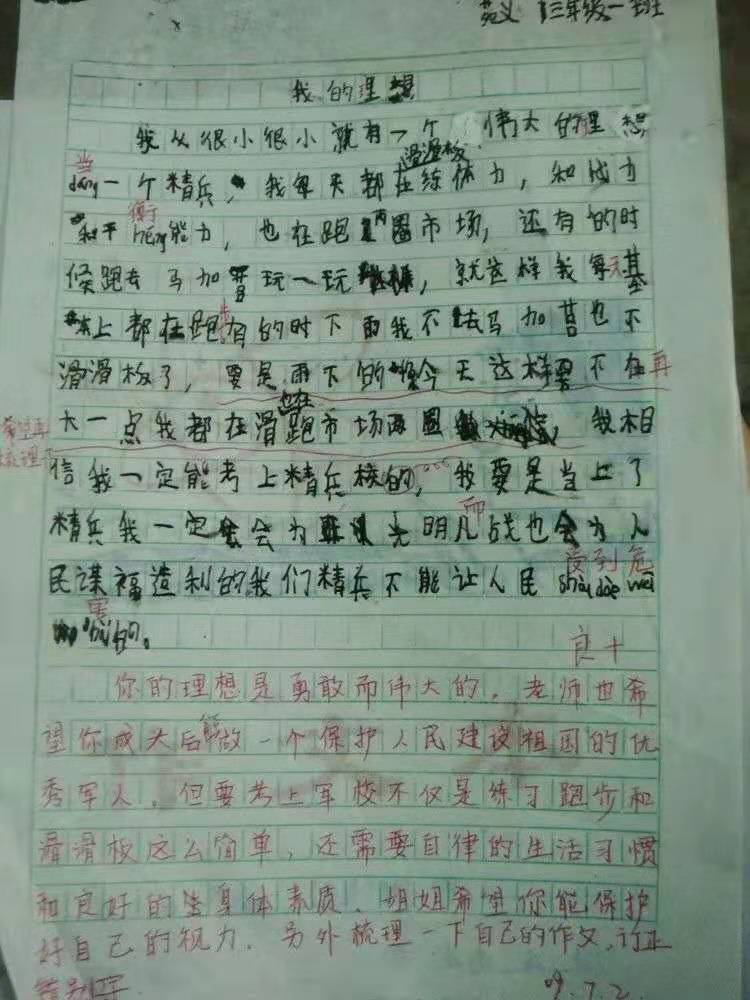 三年级一班
我的理想
我从很小很小就有一个伟大的理想
当
dang一个精兵，我每天都在滑滑板练体力，和战力
衡
和平heng能力，也在跑两圈市场，还有的时
候跑去马加普玩一玩，就这样我每天基
本上都在跑有的时下雨我不去马加普也不
滑滑板了，要是雨下的像今天这样要不在再
大一点我都在滑也在跑市场两圈，我相
希望再
梳理下
信我一定能考上精兵校的，我要是当上了
精兵我一定会会为光明而战也会为人
受到危
民谋福造利的我们精兵不能让人民shoudao wei
害
hai的。
良+
你的理想是勇敢而伟大的，老师也希
望你成大后能做一个保护人民建设祖国的优
秀军人，但要考上军校不仅是练习跑步和
滑滑板这么简单，还需要自律的生活习惯
和良好的身体素质，姐姐希望你能保护
好自己的视力，另外梳理一下自己的作文，订正
错别字